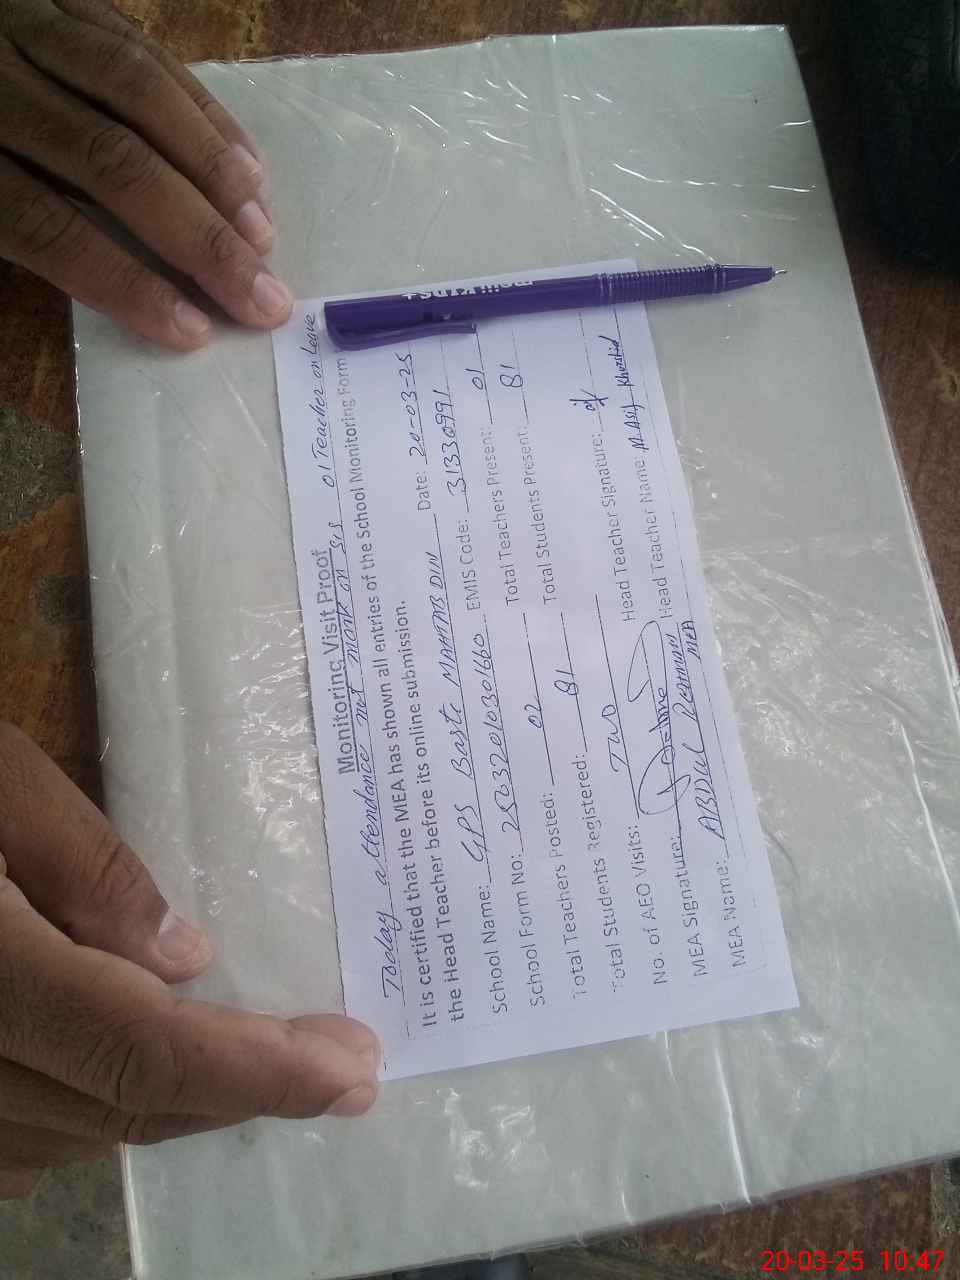 Monitoring Visit Proof
Today attendance not mark on SIS 01 Teacher on Leave
It is certified that the MEA has shown all entries of the School Monitoring Form
the Head Teacher before its online submission. Date: 20-03-25
School Name: GPS Basti MAHTAB DIN EMIS Code: 31330991
School Form No: Total Teachers Present: 01
Total Teachers Posted: 02 Total Students Present: 81
Total Students Registered: 81
No. of AEO Visits: Two Head Teacher Signature:
MEA Signature: Head Teacher Name: M.Asif Khurshid
MEA Name: ABDUL REHMAN MEA
20-03-25 10:47